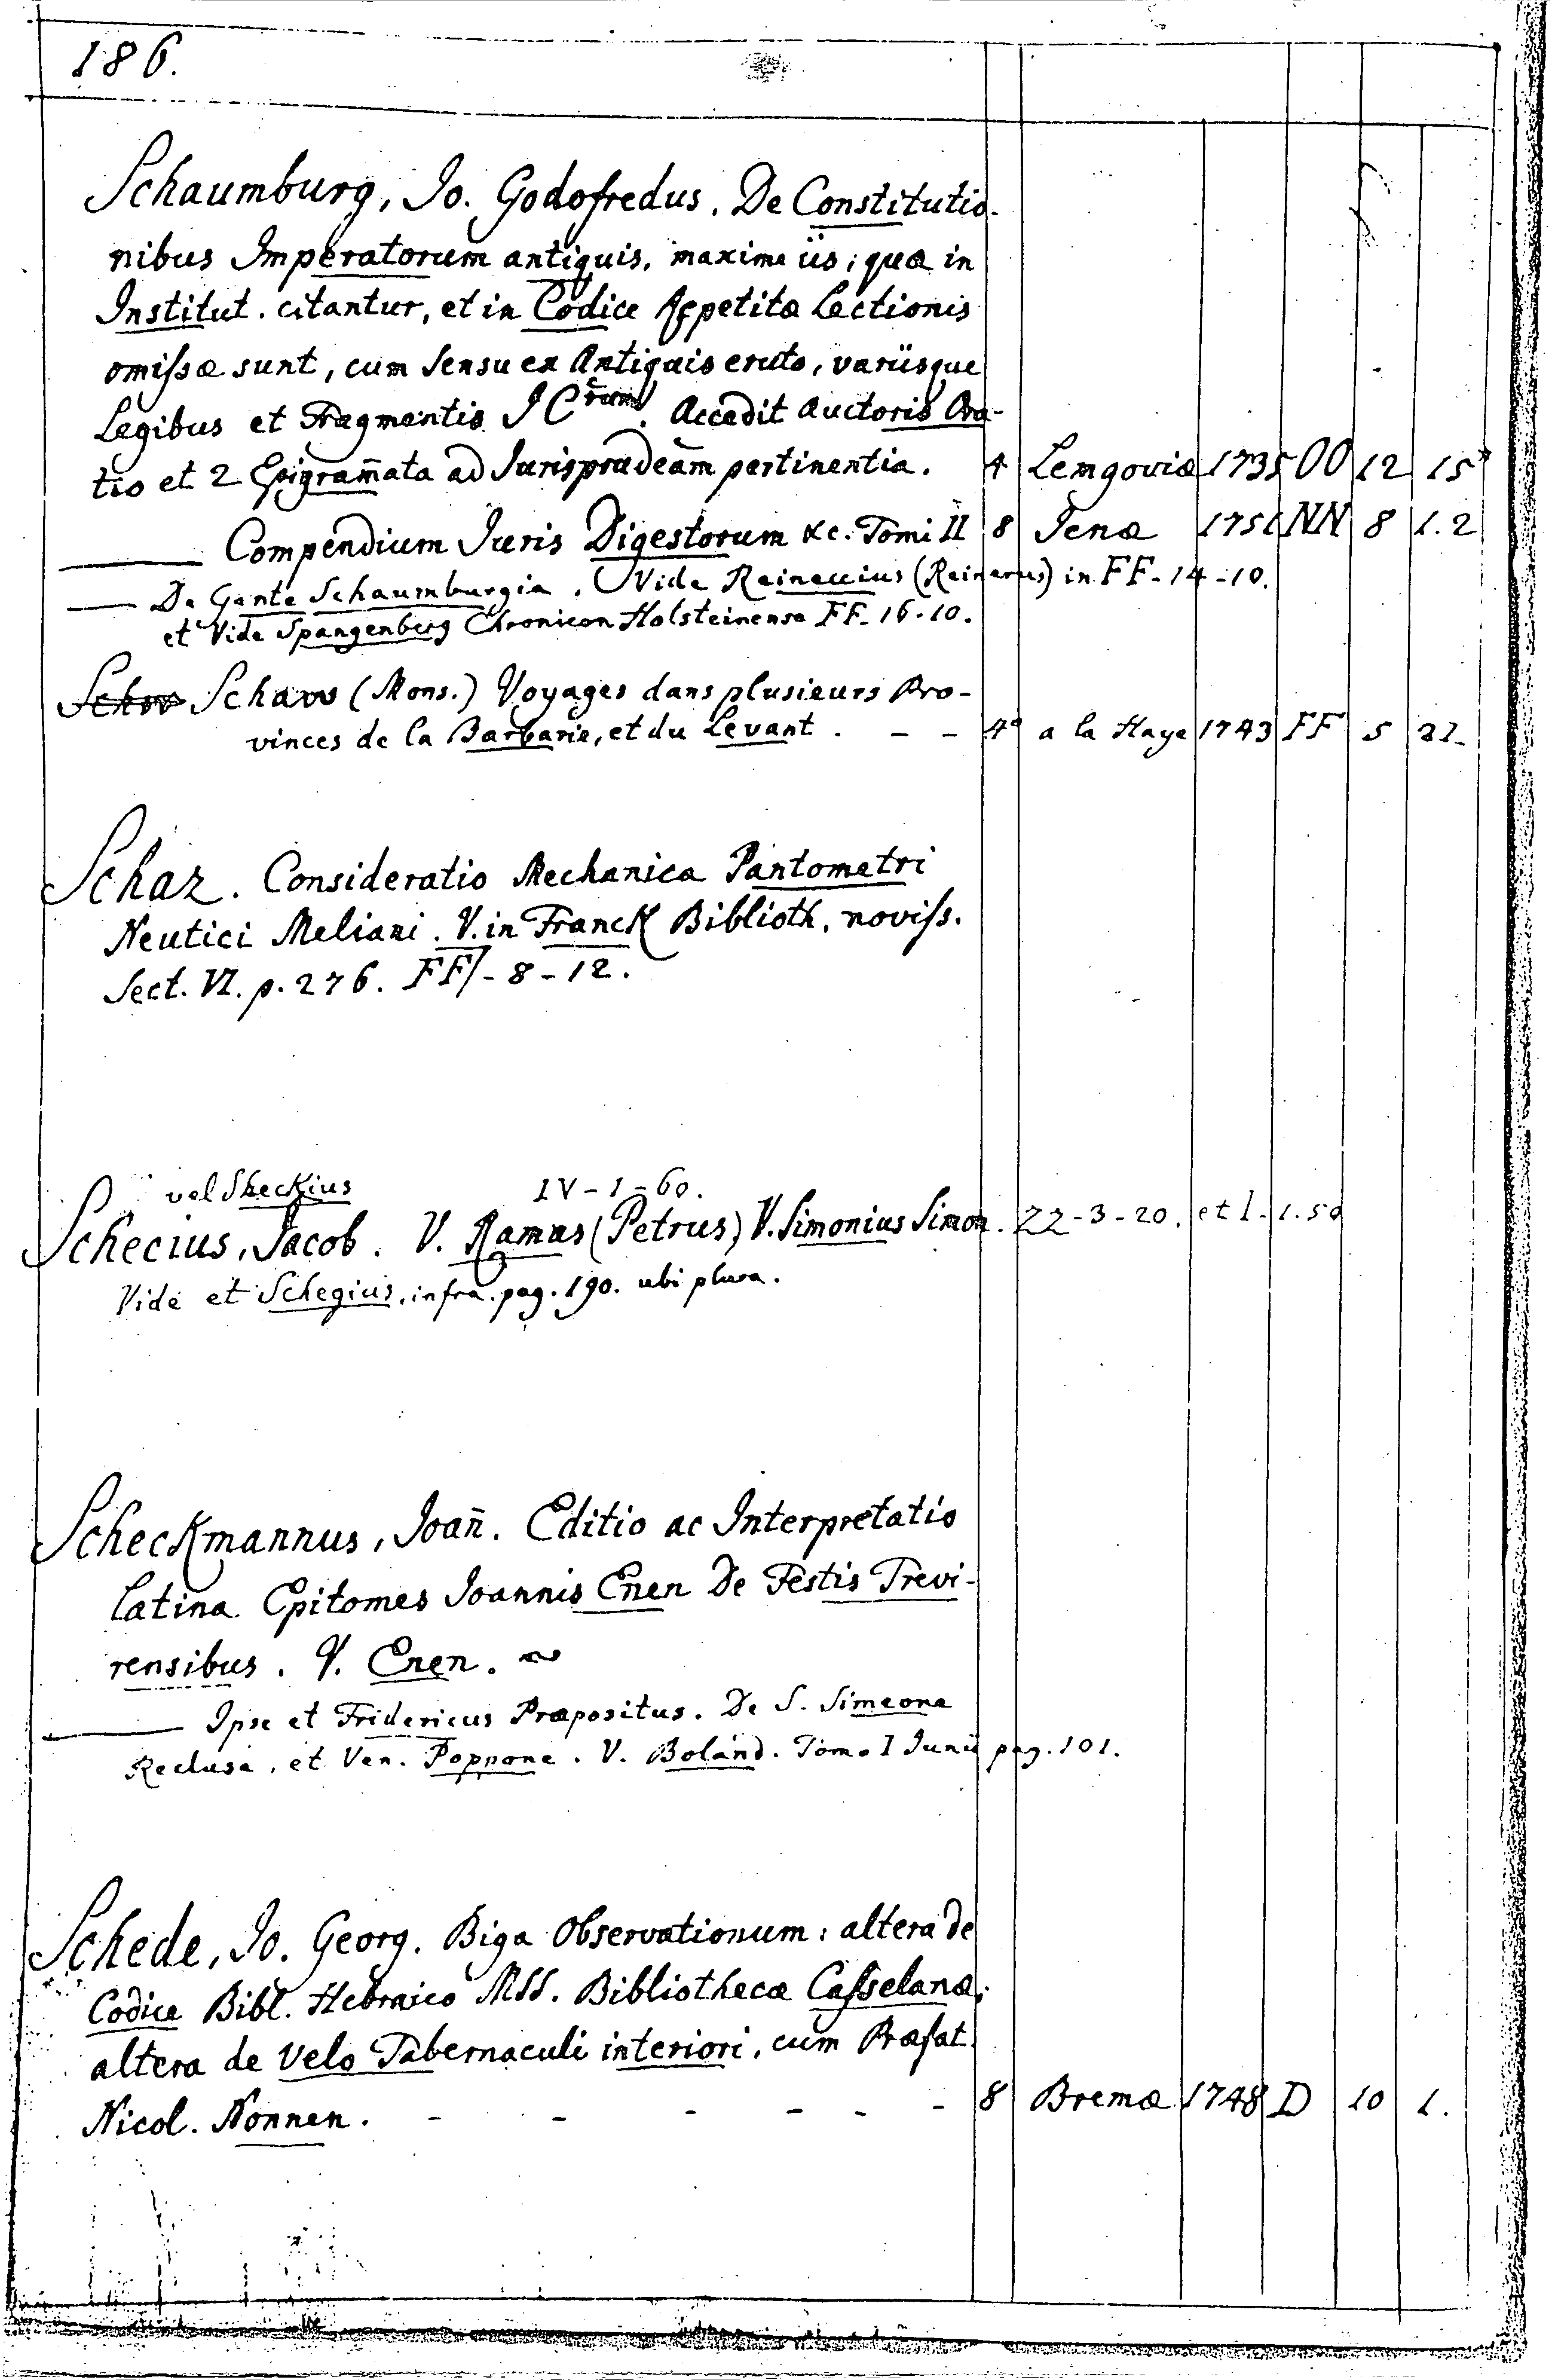 186.
Schaumburg, Jo. Godofredus. De Constitutio-
nibus Imperatorum antiquis, maxime iis, quæ in
Institut. citantur, et in Codice Repetitæ Lectionis
omissæ sunt, cum Sensu ex Antiquis eruto, variisque
Legibus et Fragmentis JCrum. Accedit Auctoris Ora-
tio et 2 Epigram̄ata ad Jurisprudeām pertinentia. 4 Lemgoviæ 1735 OO 12 15
——— Compendium Juris Digestorum &c. Tomi II 8 Jenæ 1751 NN 8 1.2
—— De Gente Schaumburgia. Vide Reineccius (Reinerus) in FF-14-10.
et Vide Spangenberg Chronicon Holsteinense FF-16-10.
Schaw (Mons.) Voyages dans plusieurs Pro-
vinces de la Barbarie, et du Levant. - - 4º a la Haye 1743 FF 5 21-
Schaz. Consideratio Mechanica Pantometri
Neutici Meliani. V. in Franck Biblioth. noviss.
Sect. VI. p. 276. FF-8-12.
vel Sheckius IV-1-60.
Schecius, Jacob. V. Ramus (Petrus) V. Simonius Simon. ZZ-3-20. et 1-1.50
Vide et Schegius, infra pag. 190. ubi plura.
Scheckmannus, Joan̄. Editio ac Interpretatio
Latina Epitomes Joannis Enen De Festis Trevi-
rensibus. V. Enen. ~
——— Ipse et Fridericus Præpositus. De S. Simeone
Recluso, et Ven. Poppone. V. Boland. Tomo I Junii pag. 101.
Schede, Jo. Georg. Biga Observationum: altera de
Codice Bibl. Hebraico MSS. Bibliothecæ Casselanæ;
altera de Velo Tabernaculi interiori, cum Præfat.
Nicol. Nonnen. - - - - - - 8 Bremæ 1748 D 10 1.